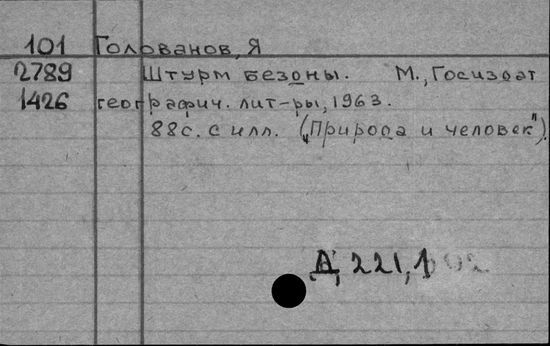 101 Голованов, Я
2789 Штурм бездны. М., Госиздат
1426 географич. лит-ры, 1963.
88с. с илл. („Природа и человек”).
Д 221,1